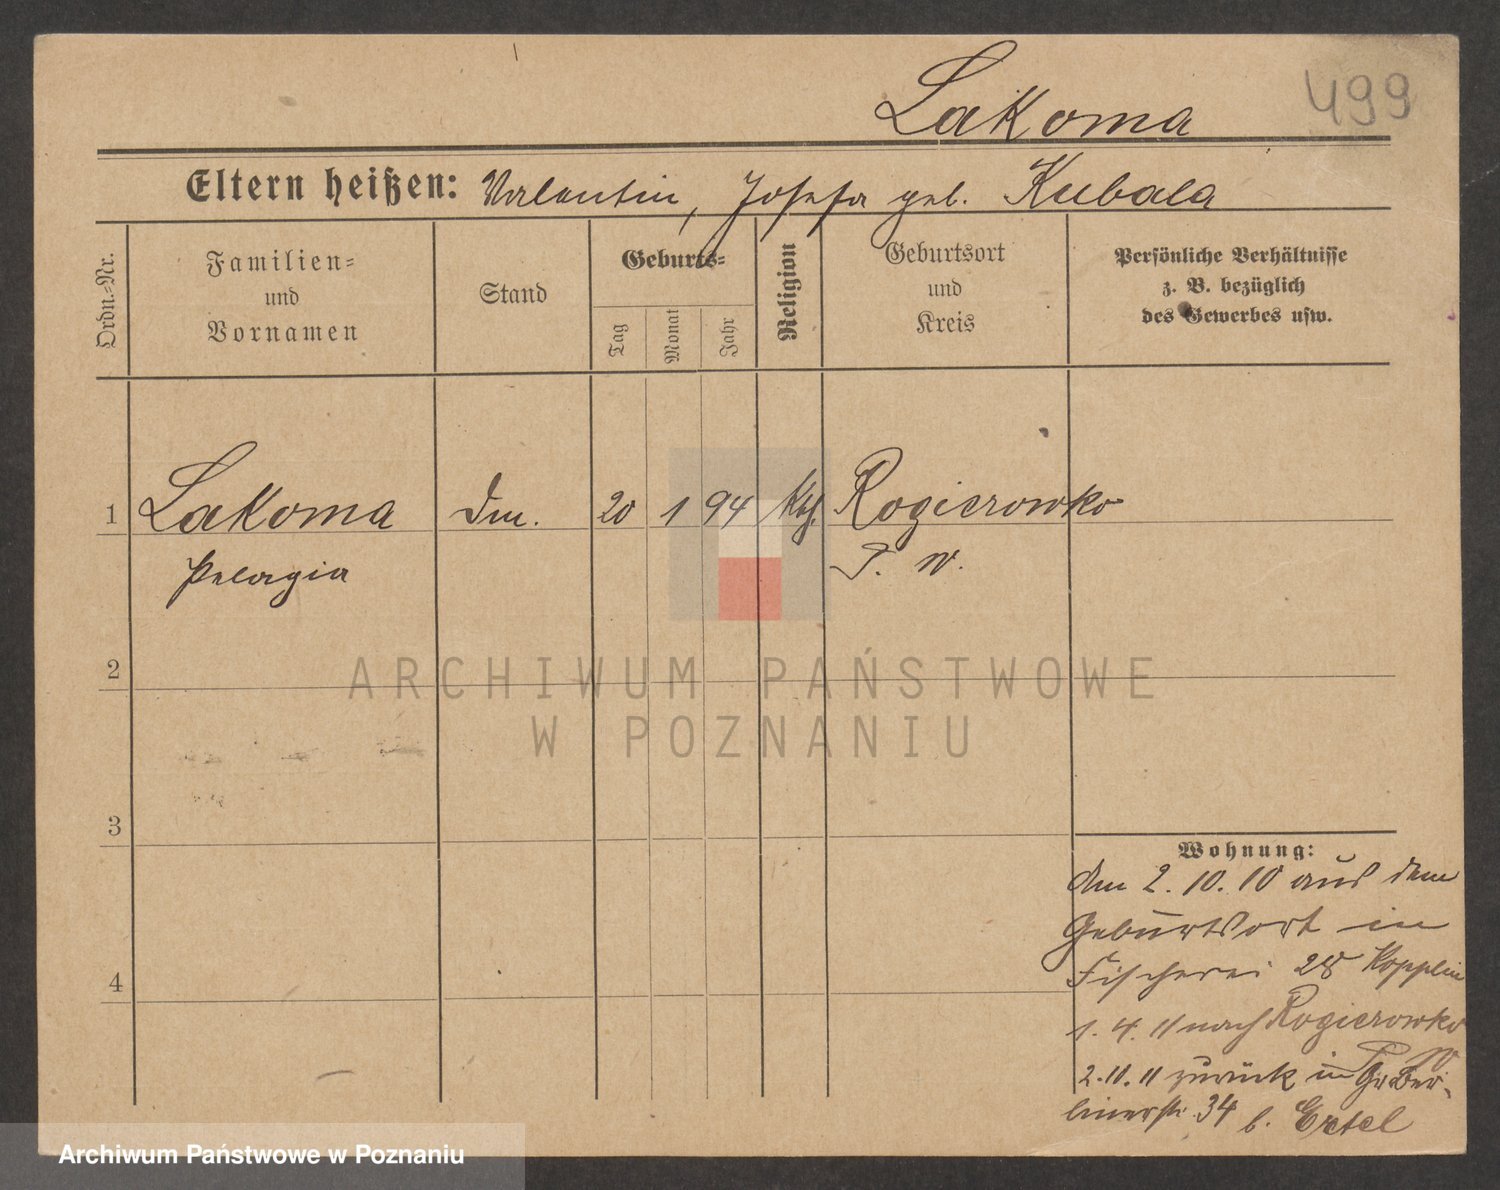 Lakoma 499
Eltern heißen: Valentin, Josefa geb. Kubala
Ordn.-Nr.
Familien- und Vornamen
Stand
Geburts-
Tag
Monat
Jahr
Religion
Geburtsort und Kreis
Persönliche Verhältnisse
z. B. bezüglich
des Gewerbes usw.
1 Lakoma Dm. 20 1 94 Kth. Rogierowko
Pelagia P. W.
2
ARCHIWUM PAŃSTWOWE
W POZNANIU
3
Wohnung:
den 2. 10. 10 aus dem
Geburtsort in
Fischerei 28 Kopplin
4
1. 4. 11 nach Rogierowko
P. W.
2. 10. 11 zurück in Gr. Ber-
linerstr. 34 b. Ertel
Archiwum Państwowe w Poznaniu